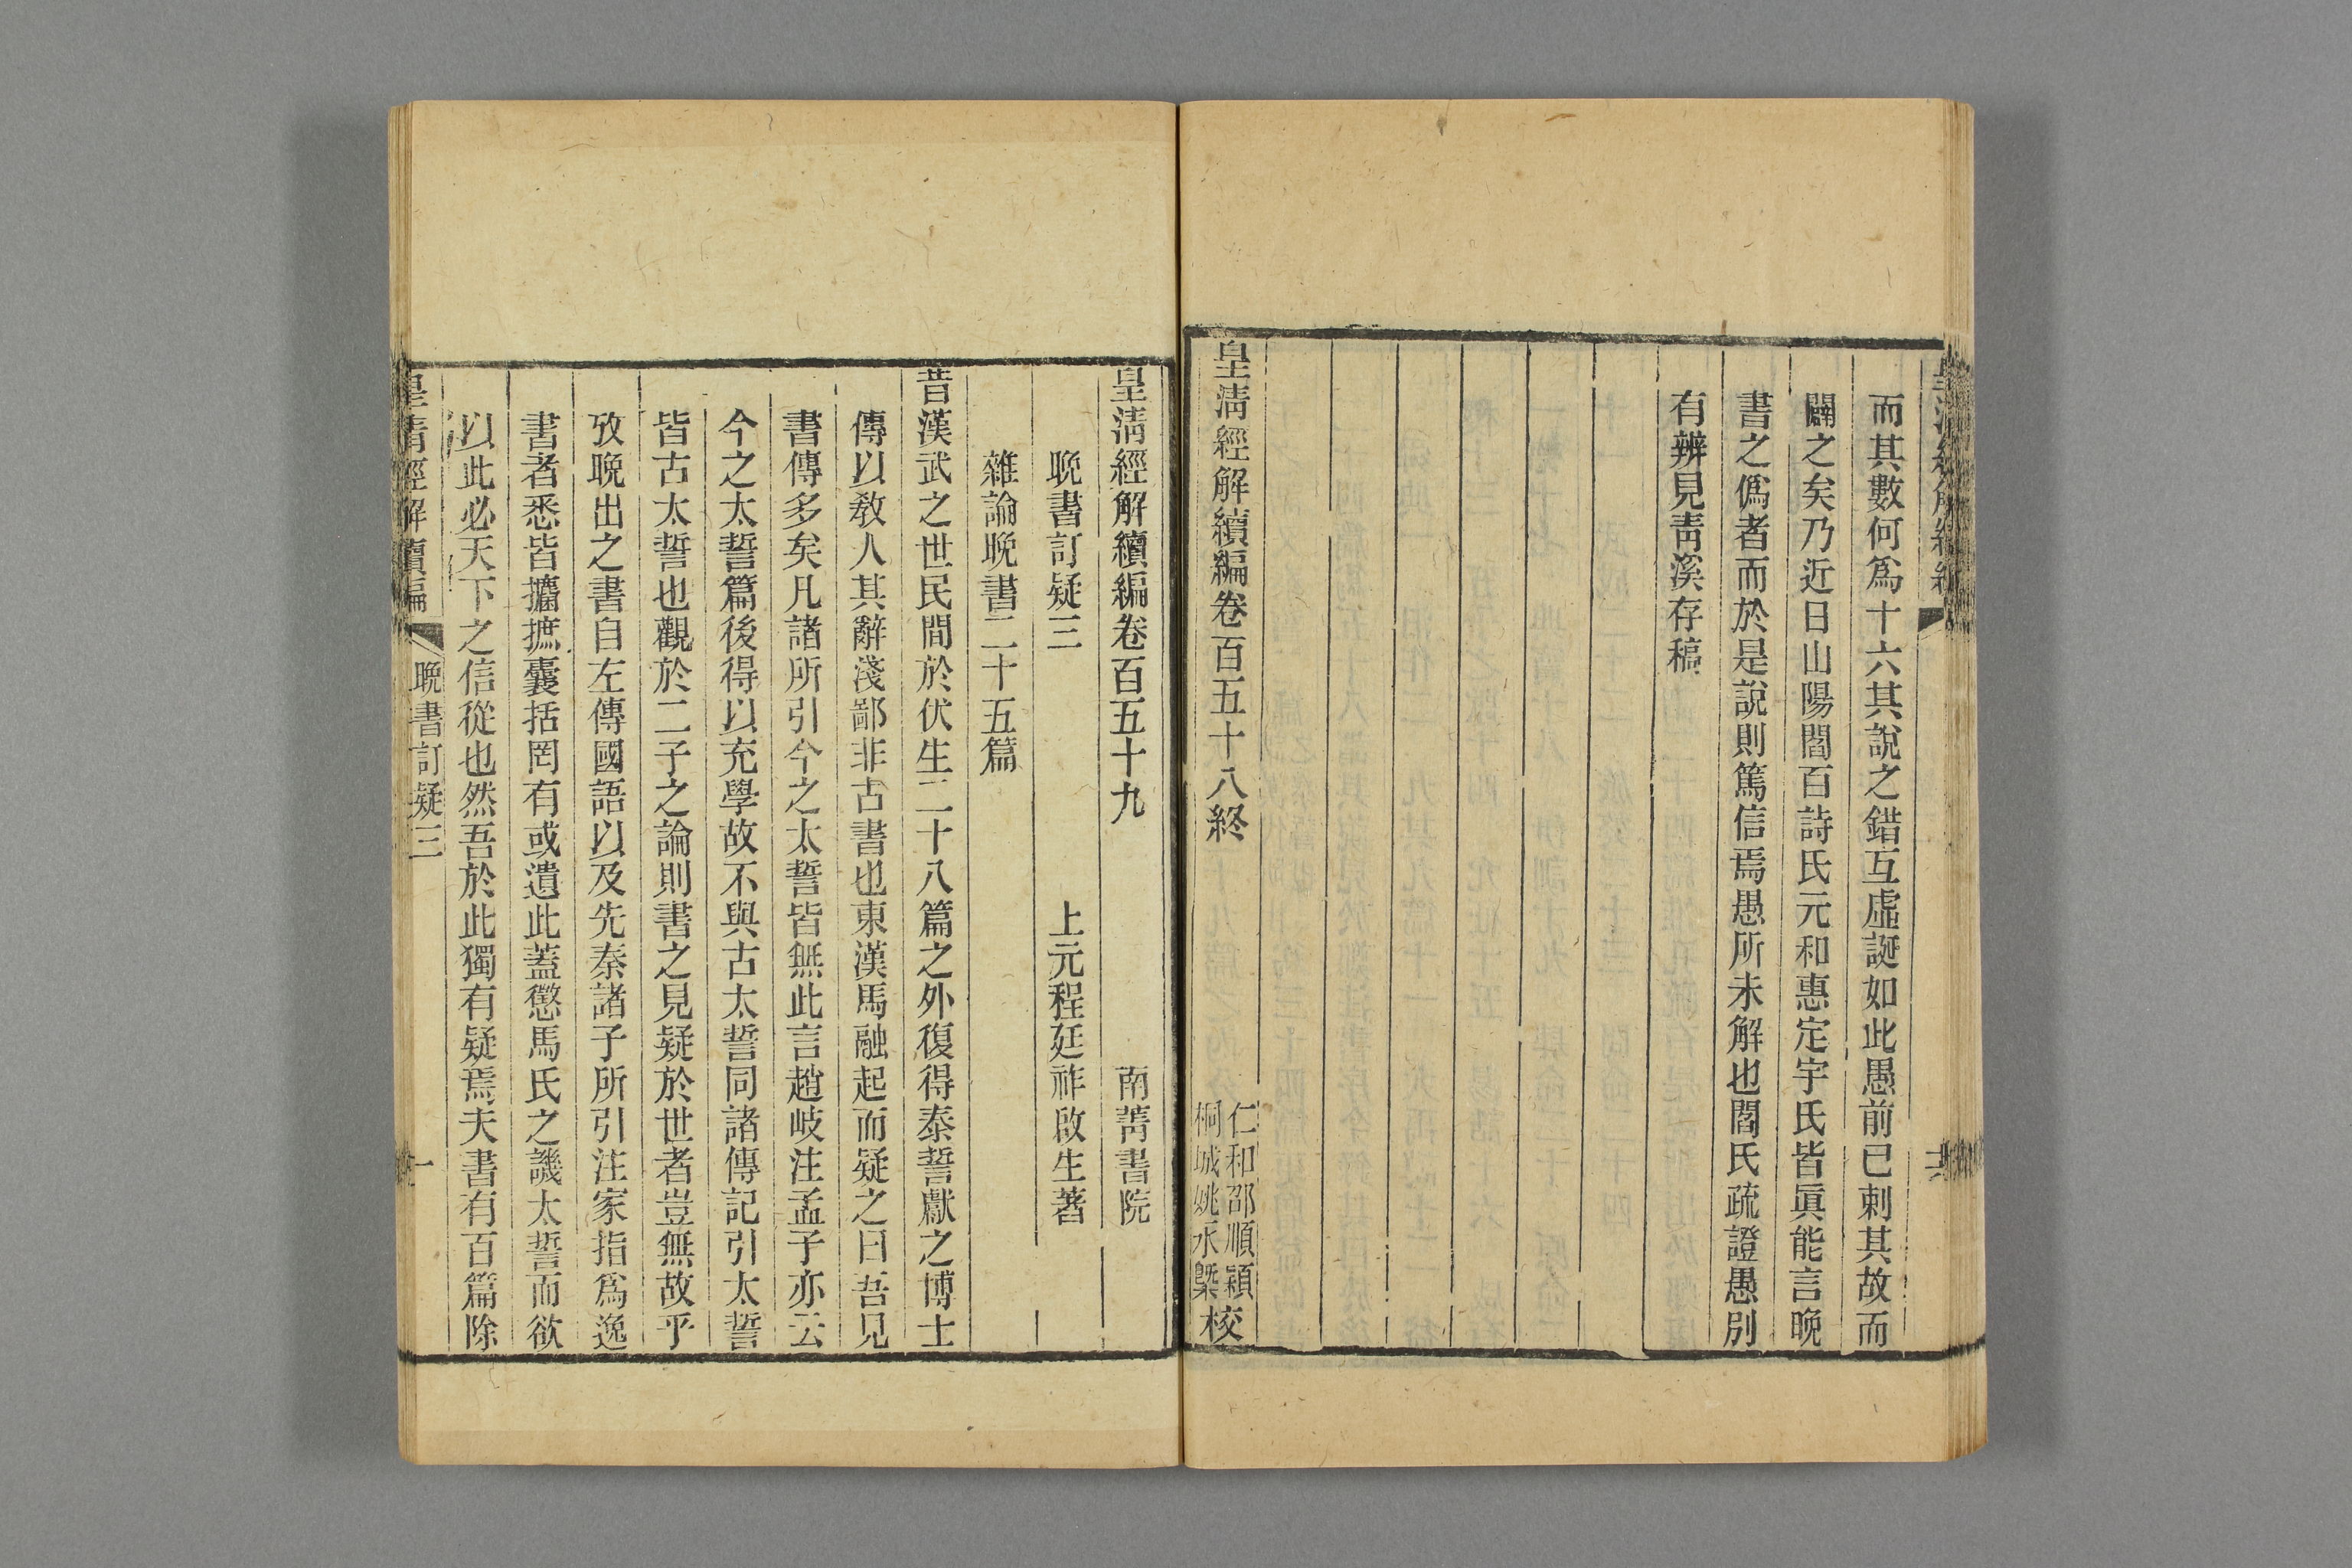 而其數何爲十六其說之錯互虛誕如此愚前已刺其故而
闢之矣乃近日山陽閻百詩氏元和惠定宇氏皆眞能言晚
書之僞者而於是說則篤信焉愚所未解也閻氏疏證愚別
有辨見靑溪存稿
皇淸經解續編卷百五十八終
仁和邵順穎
桐城姚永㮣校
皇淸經解續編卷百五十九
南菁書院
晚書訂疑三
上元程廷祚啟生著
雜論晚書二十五篇
昔漢武之世民間於伏生二十八篇之外復得泰誓獻之博士
傳以敎人其辭淺鄙非古書也東漢馬融起而疑之曰吾見
書傳多矣凡諸所引今之太誓皆無此言趙岐注孟子亦云
今之太誓篇後得以充學故不與古太誓同諸傳記引太誓
皆古太誓也觀於二子之論則書之見疑於世者豈無故乎
攷晚出之書自左傳國語以及先秦諸子所引注家指爲逸
書者悉皆攟摭囊括罔有或遺此蓋懲馬氏之譏太誓而欲
以此必天下之信從也然吾於此獨有疑焉夫書有百篇除
皇淸經解續編
晚書訂疑三
一